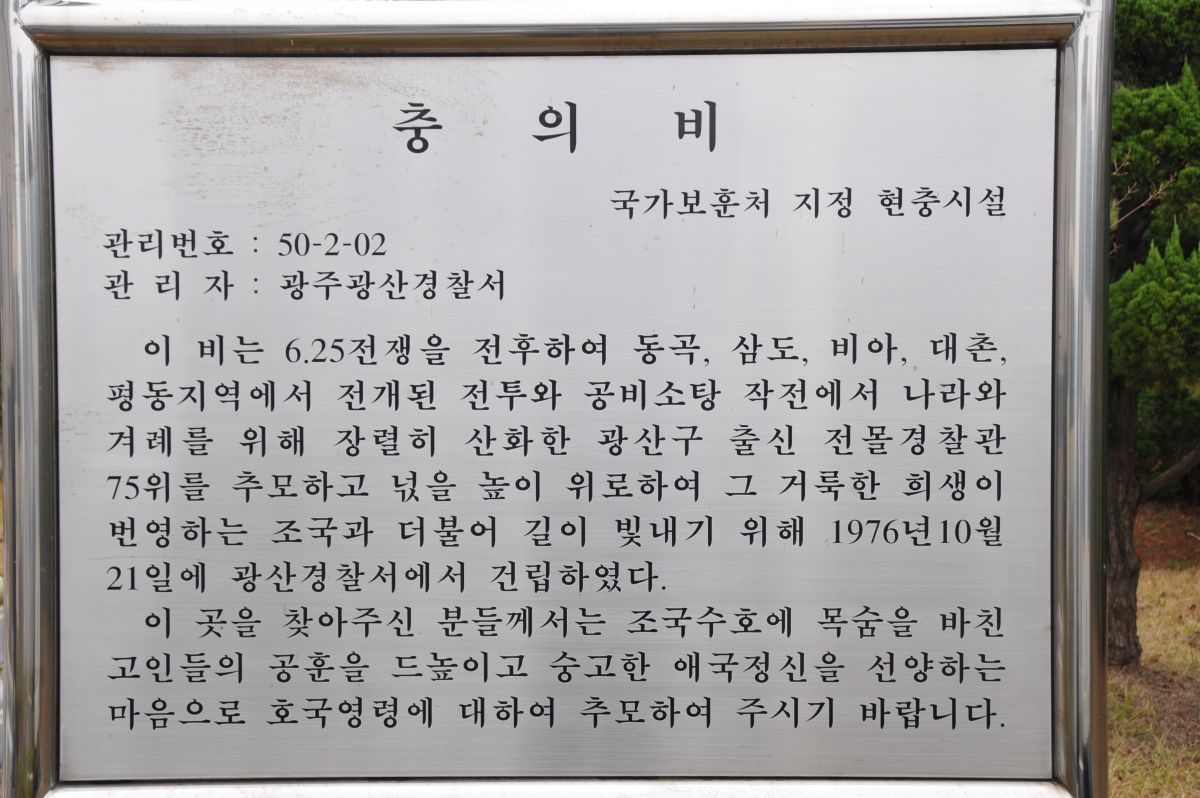 충 의 비
국가보훈처 지정 현충시설
관리번호 : 50-2-02
관 리 자 : 광주광산경찰서
이 비는 6.25전쟁을 전후하여 동곡, 삼도, 비아, 대촌,
평동지역에서 전개된 전투와 공비소탕 작전에서 나라와
겨레를 위해 장렬히 산화한 광산구 출신 전몰경찰관
75위를 추모하고 넋을 높이 위로하여 그 거룩한 희생이
번영하는 조국과 더불어 길이 빛내기 위해 1976년10월
21일에 광산경찰서에서 건립하였다.
이 곳을 찾아주신 분들께서는 조국수호에 목숨을 바친
고인들의 공훈을 드높이고 숭고한 애국정신을 선양하는
마음으로 호국영령에 대하여 추모하여 주시기 바랍니다.